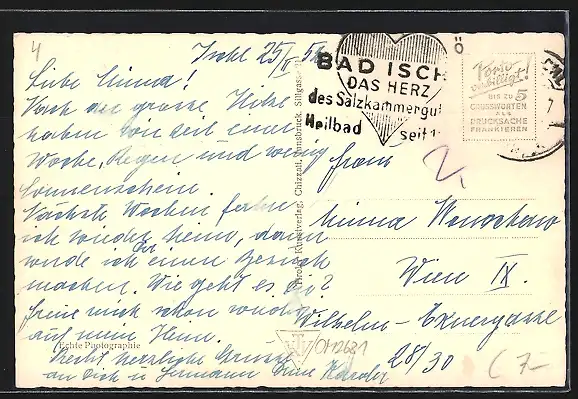 4
Ischl 25/V 5
Liebe Minna!
Nach der grossen Hitze
haben wir seit einer
Woche, Regen und wenig
Sonnenschein.
Nächste Woche fahre
ich wieder heim, dann
werde ich Dir einen Besuch
machen. Wie geht es Dir?
freue mich schon wieder
auf mein Heim.
Echte Photographie
Recht herzliche Grüsse
an Dich u. Hermann Deine
BAD ISCHL
DAS HERZ
des Salzkammergut
Heilbad seit 1
Porto
verbilligt!
BIS ZU 5
GRUSSWORTEN
ALS
DRUCKSACHE
FRANKIEREN
Tiroler Kunstverlag, Chizzali, Innsbruck, Sillgasse
Frau
Minna
Wien IX.
Wilhelm-Exnergasse
28/30
/OH2681
7-